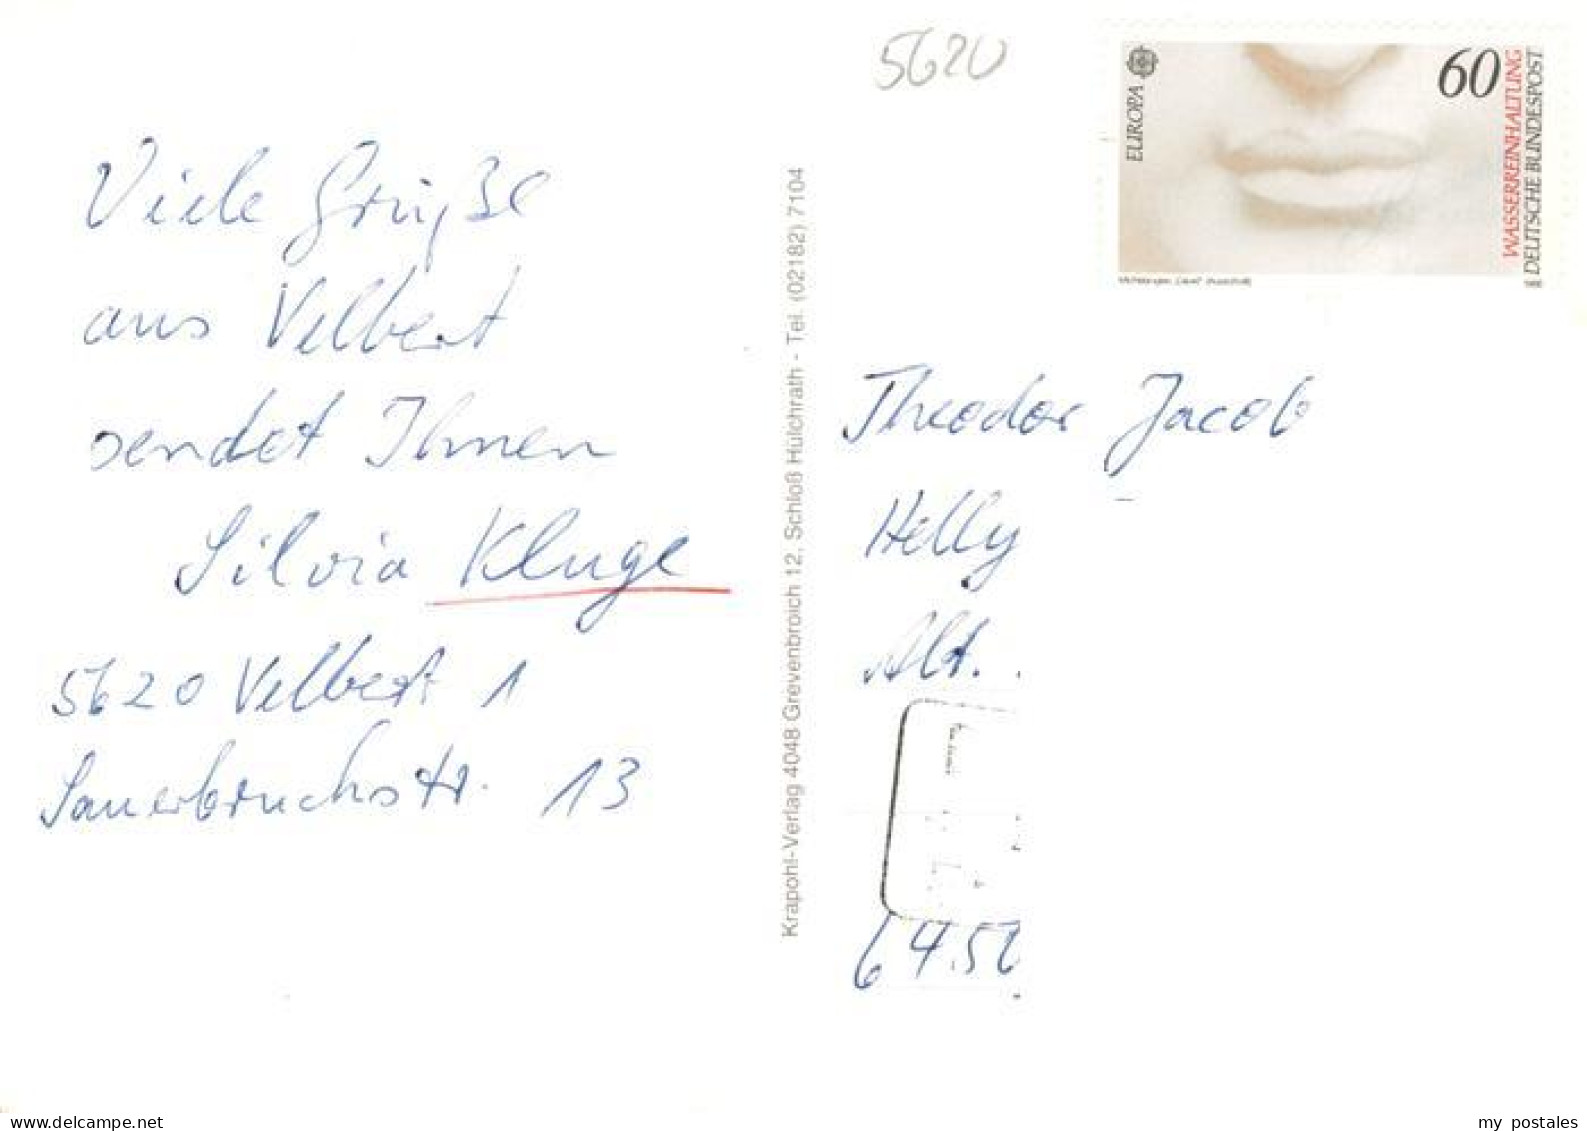 5620
EUROPA
60
WASSERREINHALTUNG
DEUTSCHE BUNDESPOST
Viele Grüße
aus Velbert
sendet Ihnen
Silvia Kluge
5620 Velbert 1
Sauerbruchstr. 13
Krapohl-Verlag 4048 Grevenbroich 12, Schloß Hülchrath - Tel. (02182) 7104
Theodor Jacob
Helly
Abt.
6450
www.delcampe.net
my postales